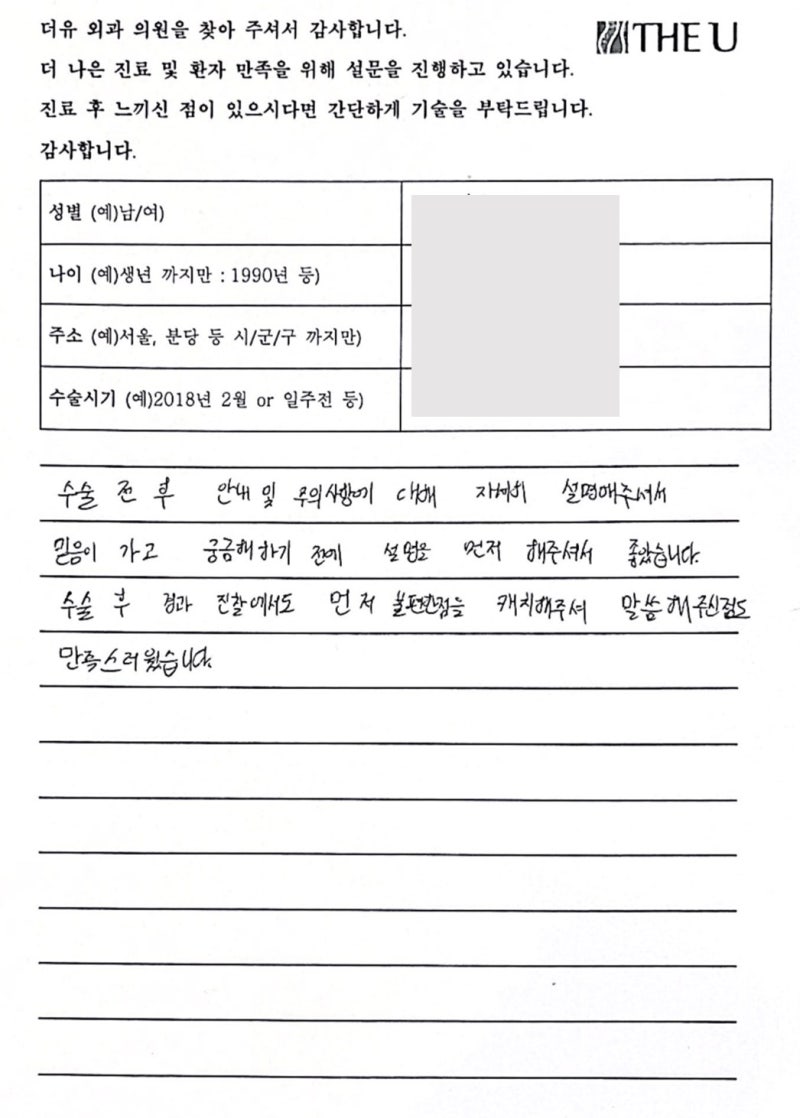 더유 외과 의원을 찾아 주셔서 감사합니다.
THE U
더 나은 진료 및 환자 만족을 위해 설문을 진행하고 있습니다.
진료 후 느끼신 점이 있으시다면 간단하게 기술을 부탁드립니다.
감사합니다.
성별 (예)남/여)
나이 (예)생년 까지만 : 1990년 등)
주소 (예)서울, 분당 등 시/군/구 까지만)
수술시기 (예)2018년 2월 or 일주전 등)
수술 전 후 안내 및 주의사항에 대해 자세히 설명해주셔서
믿음이 가고 궁금해 하기 전에 설명을 먼저 해주셔서 좋았습니다.
수술 후 경과 진찰에서도 먼저 불편한점을 캐치해주셔 말씀해주신점도
만족스러웠습니다.